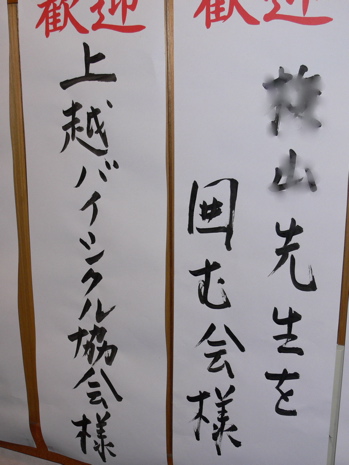 歓迎
山先生を
囲む会様
歓迎
上越バイシクル協会様